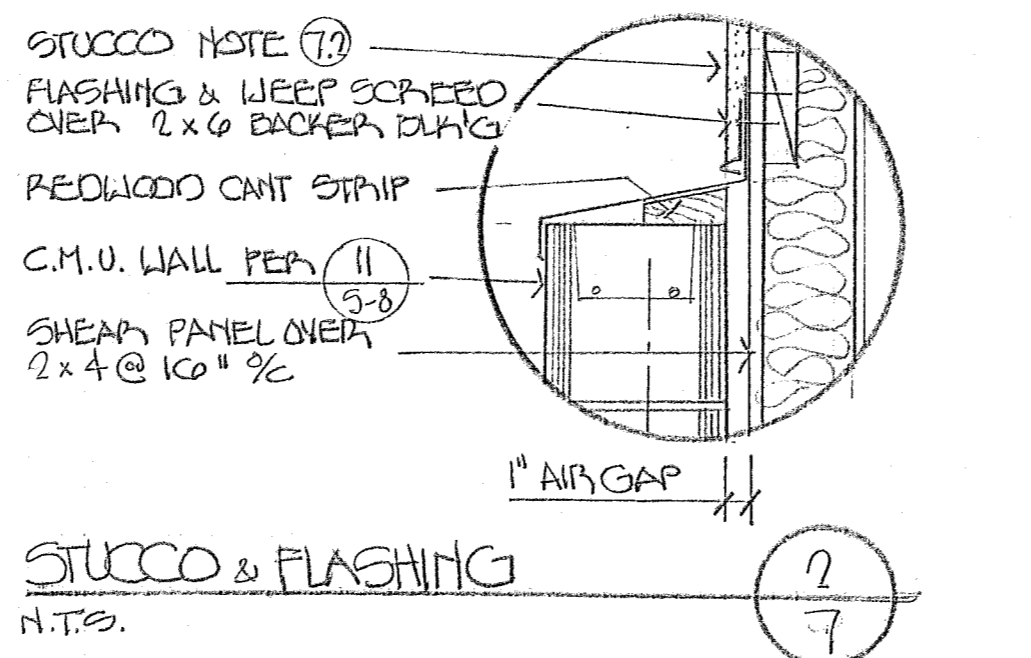 STUCCO NOTE 7.2
FLASHING & WEEP SCREED
OVER 2 x 6 BACKER BLK'G
REDWOOD CANT STRIP
C.M.U. WALL PER 11
S-8
SHEAR PANEL OVER
2 x 4 @ 16" O/C
1" AIR GAP
STUCCO & FLASHING
2
7
N.T.S.